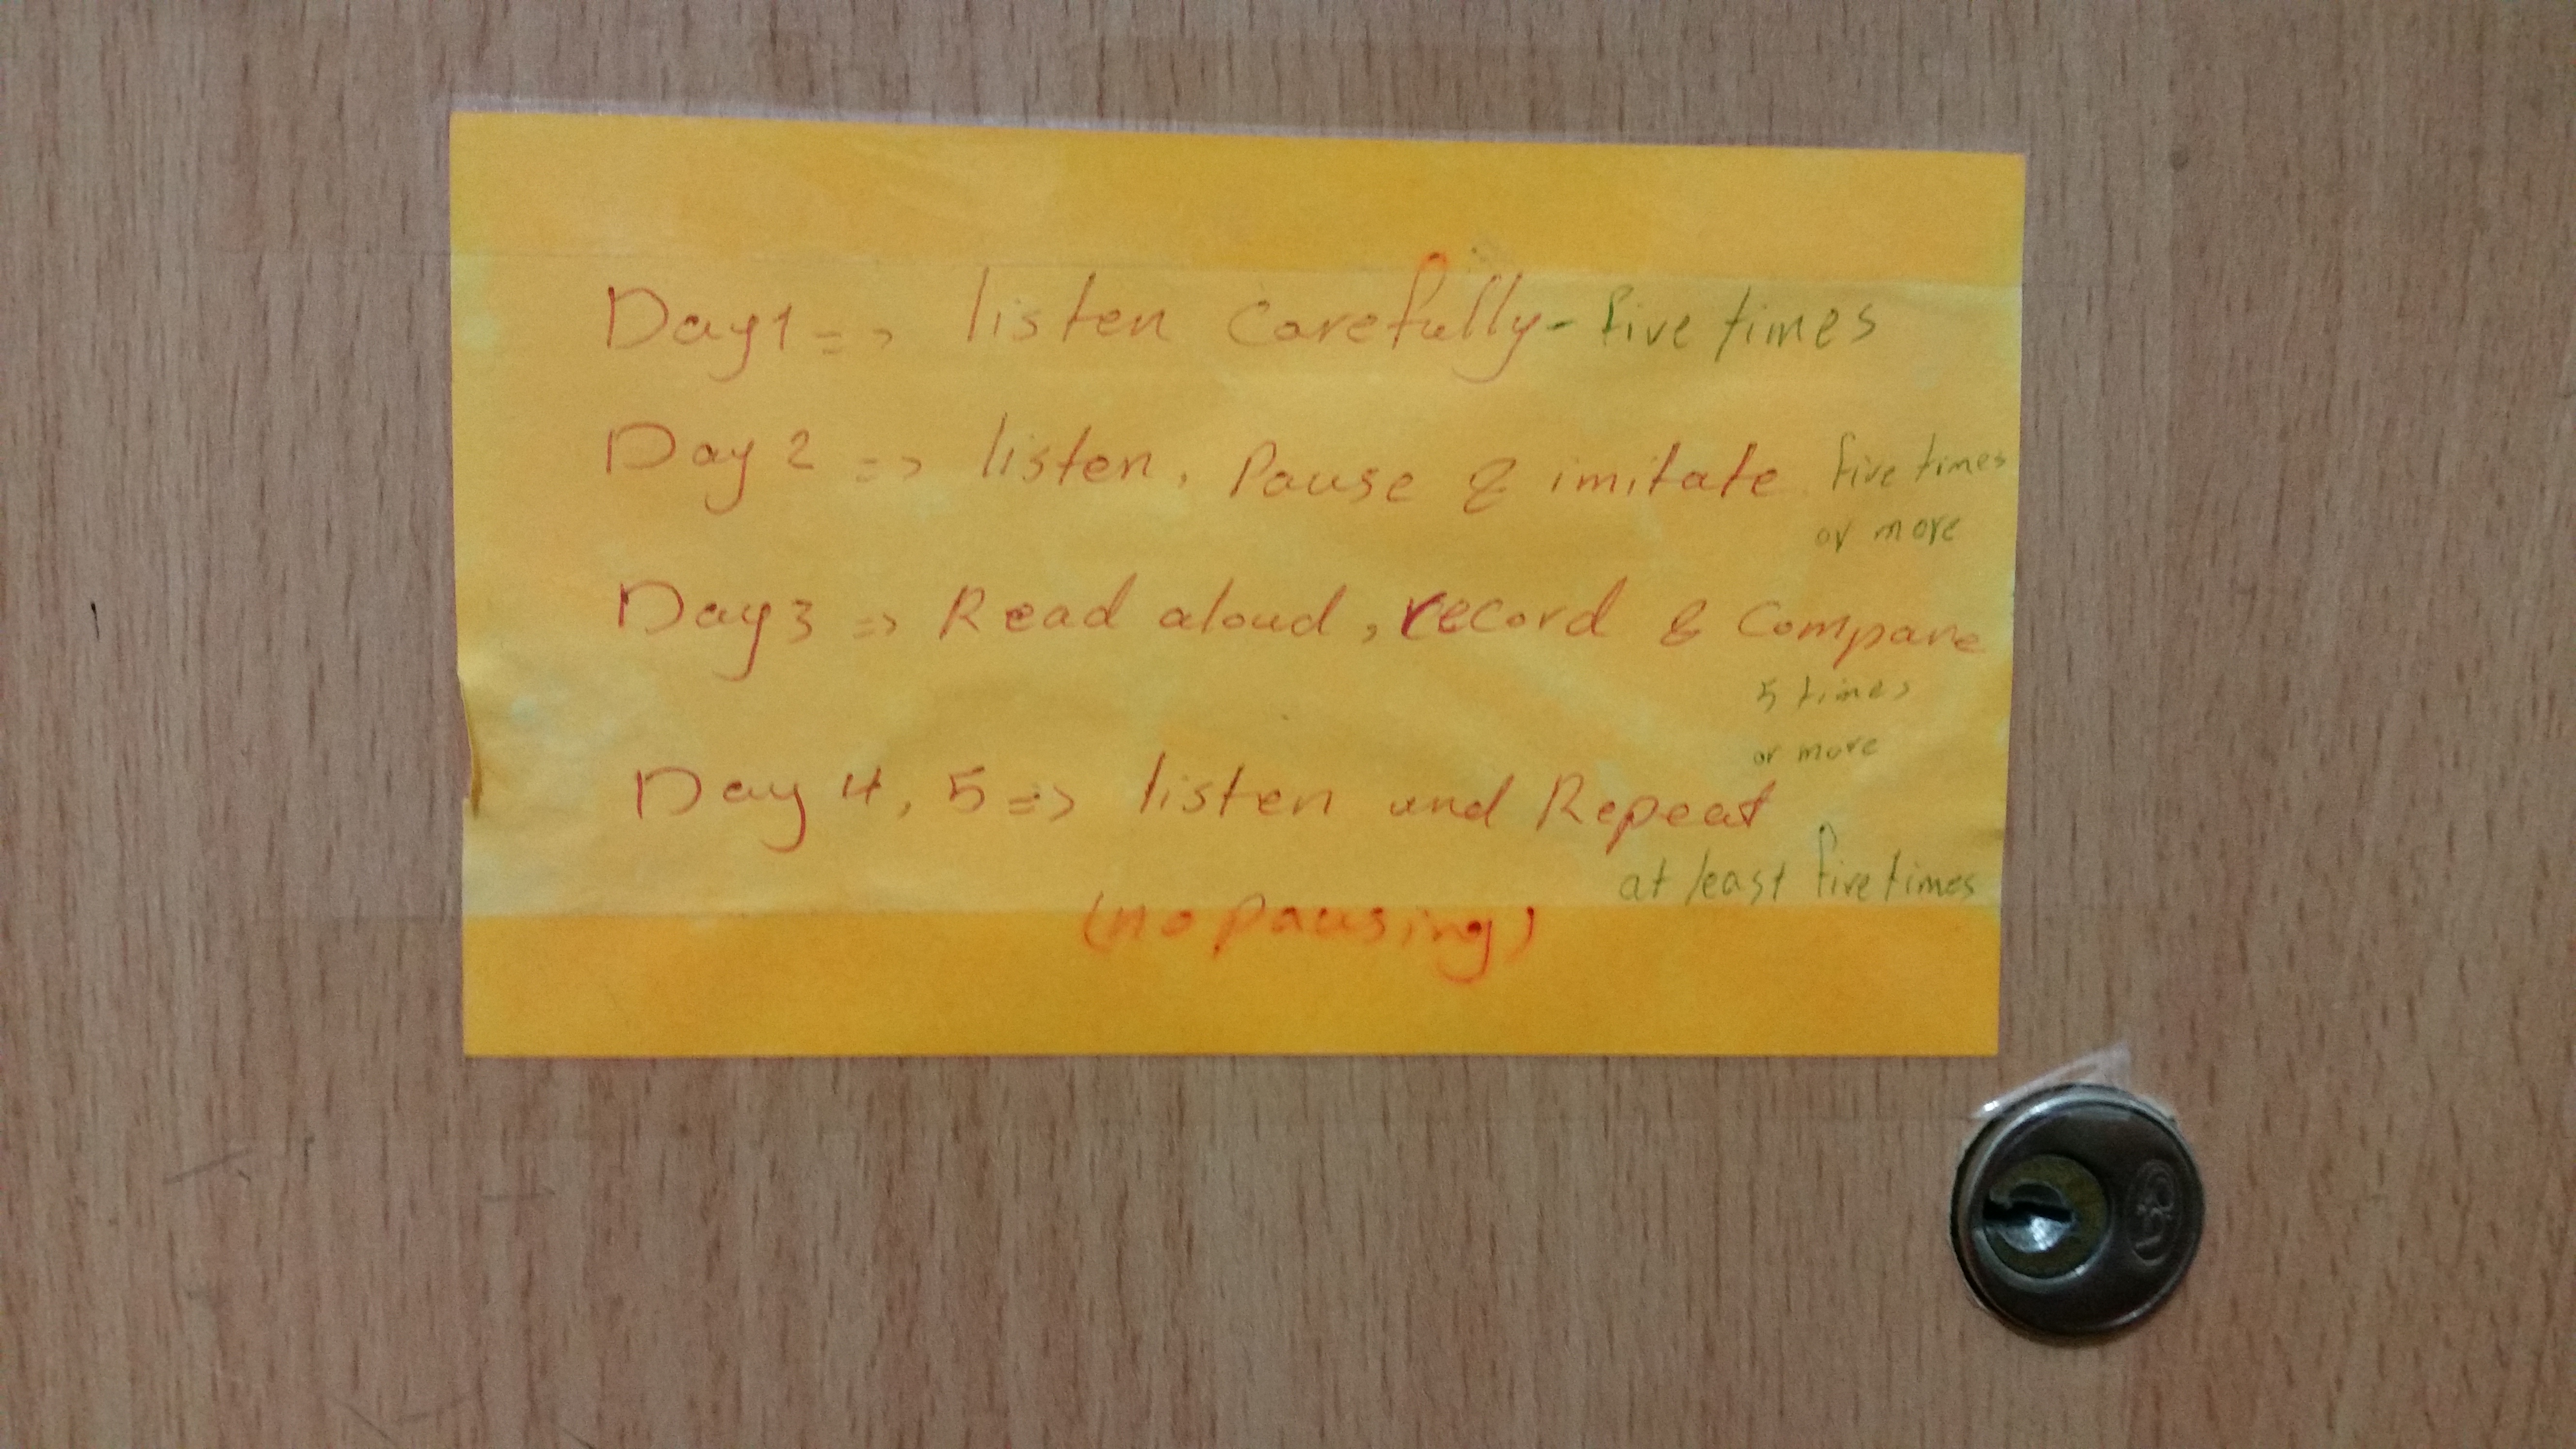 Day 1 => listen carefully - five times
Day 2 => listen, Pause & imitate five times
or more
Day 3 => Read aloud, record & Compare
5 times
or more
Day 4, 5 => listen and Repeat
at least five times
(no pausing)